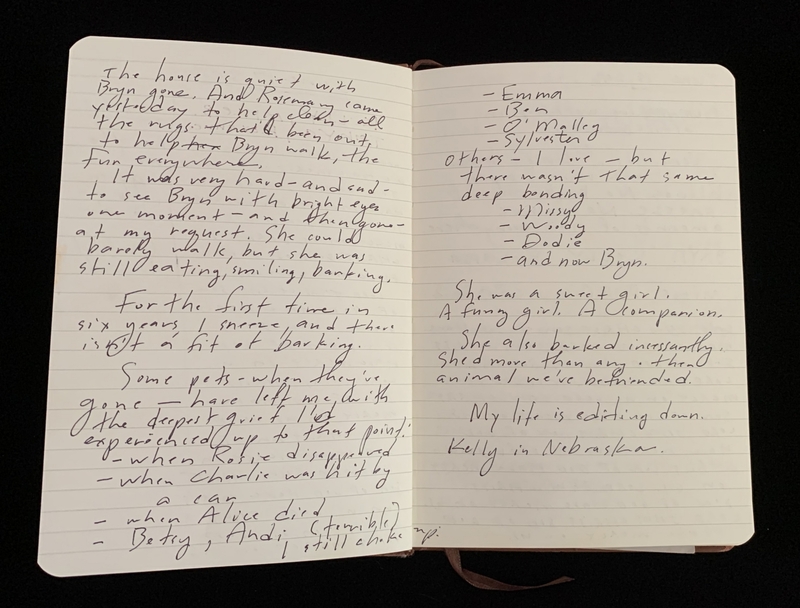 The house is quiet with
Bryn gone. And Rosemary came
yesterday to help clean - all
the rugs that'd been out,
to help her Bryn walk, the
fur everywhere.
It was very hard - and sad -
to see Bryn with bright eyes
one moment - and then gone -
at my request. She could
barely walk, but she was
still eating, smiling, barking.
For the first time in
six years I sneeze, and there
isn't a fit of barking.
Some pets - when they've
gone - have left me with
the deepest grief I'd
experienced up to that point:
- when Rosie disappeared
- when Charlie was hit by
a car
- when Alice died
- Betsy, Andi (terrible)
I still choke up.
- Emma
- Ben
- O'Malley
- Sylvester
Others - I love - but
there wasn't that same
deep bonding
- Missy
- Woody
- Dodie
- and now Bryn.
She was a sweet girl.
A funny girl. A companion.
She also barked incessantly.
Shed more than any other
animal we've befriended.
My life is editing down.
Kelly in Nebraska.